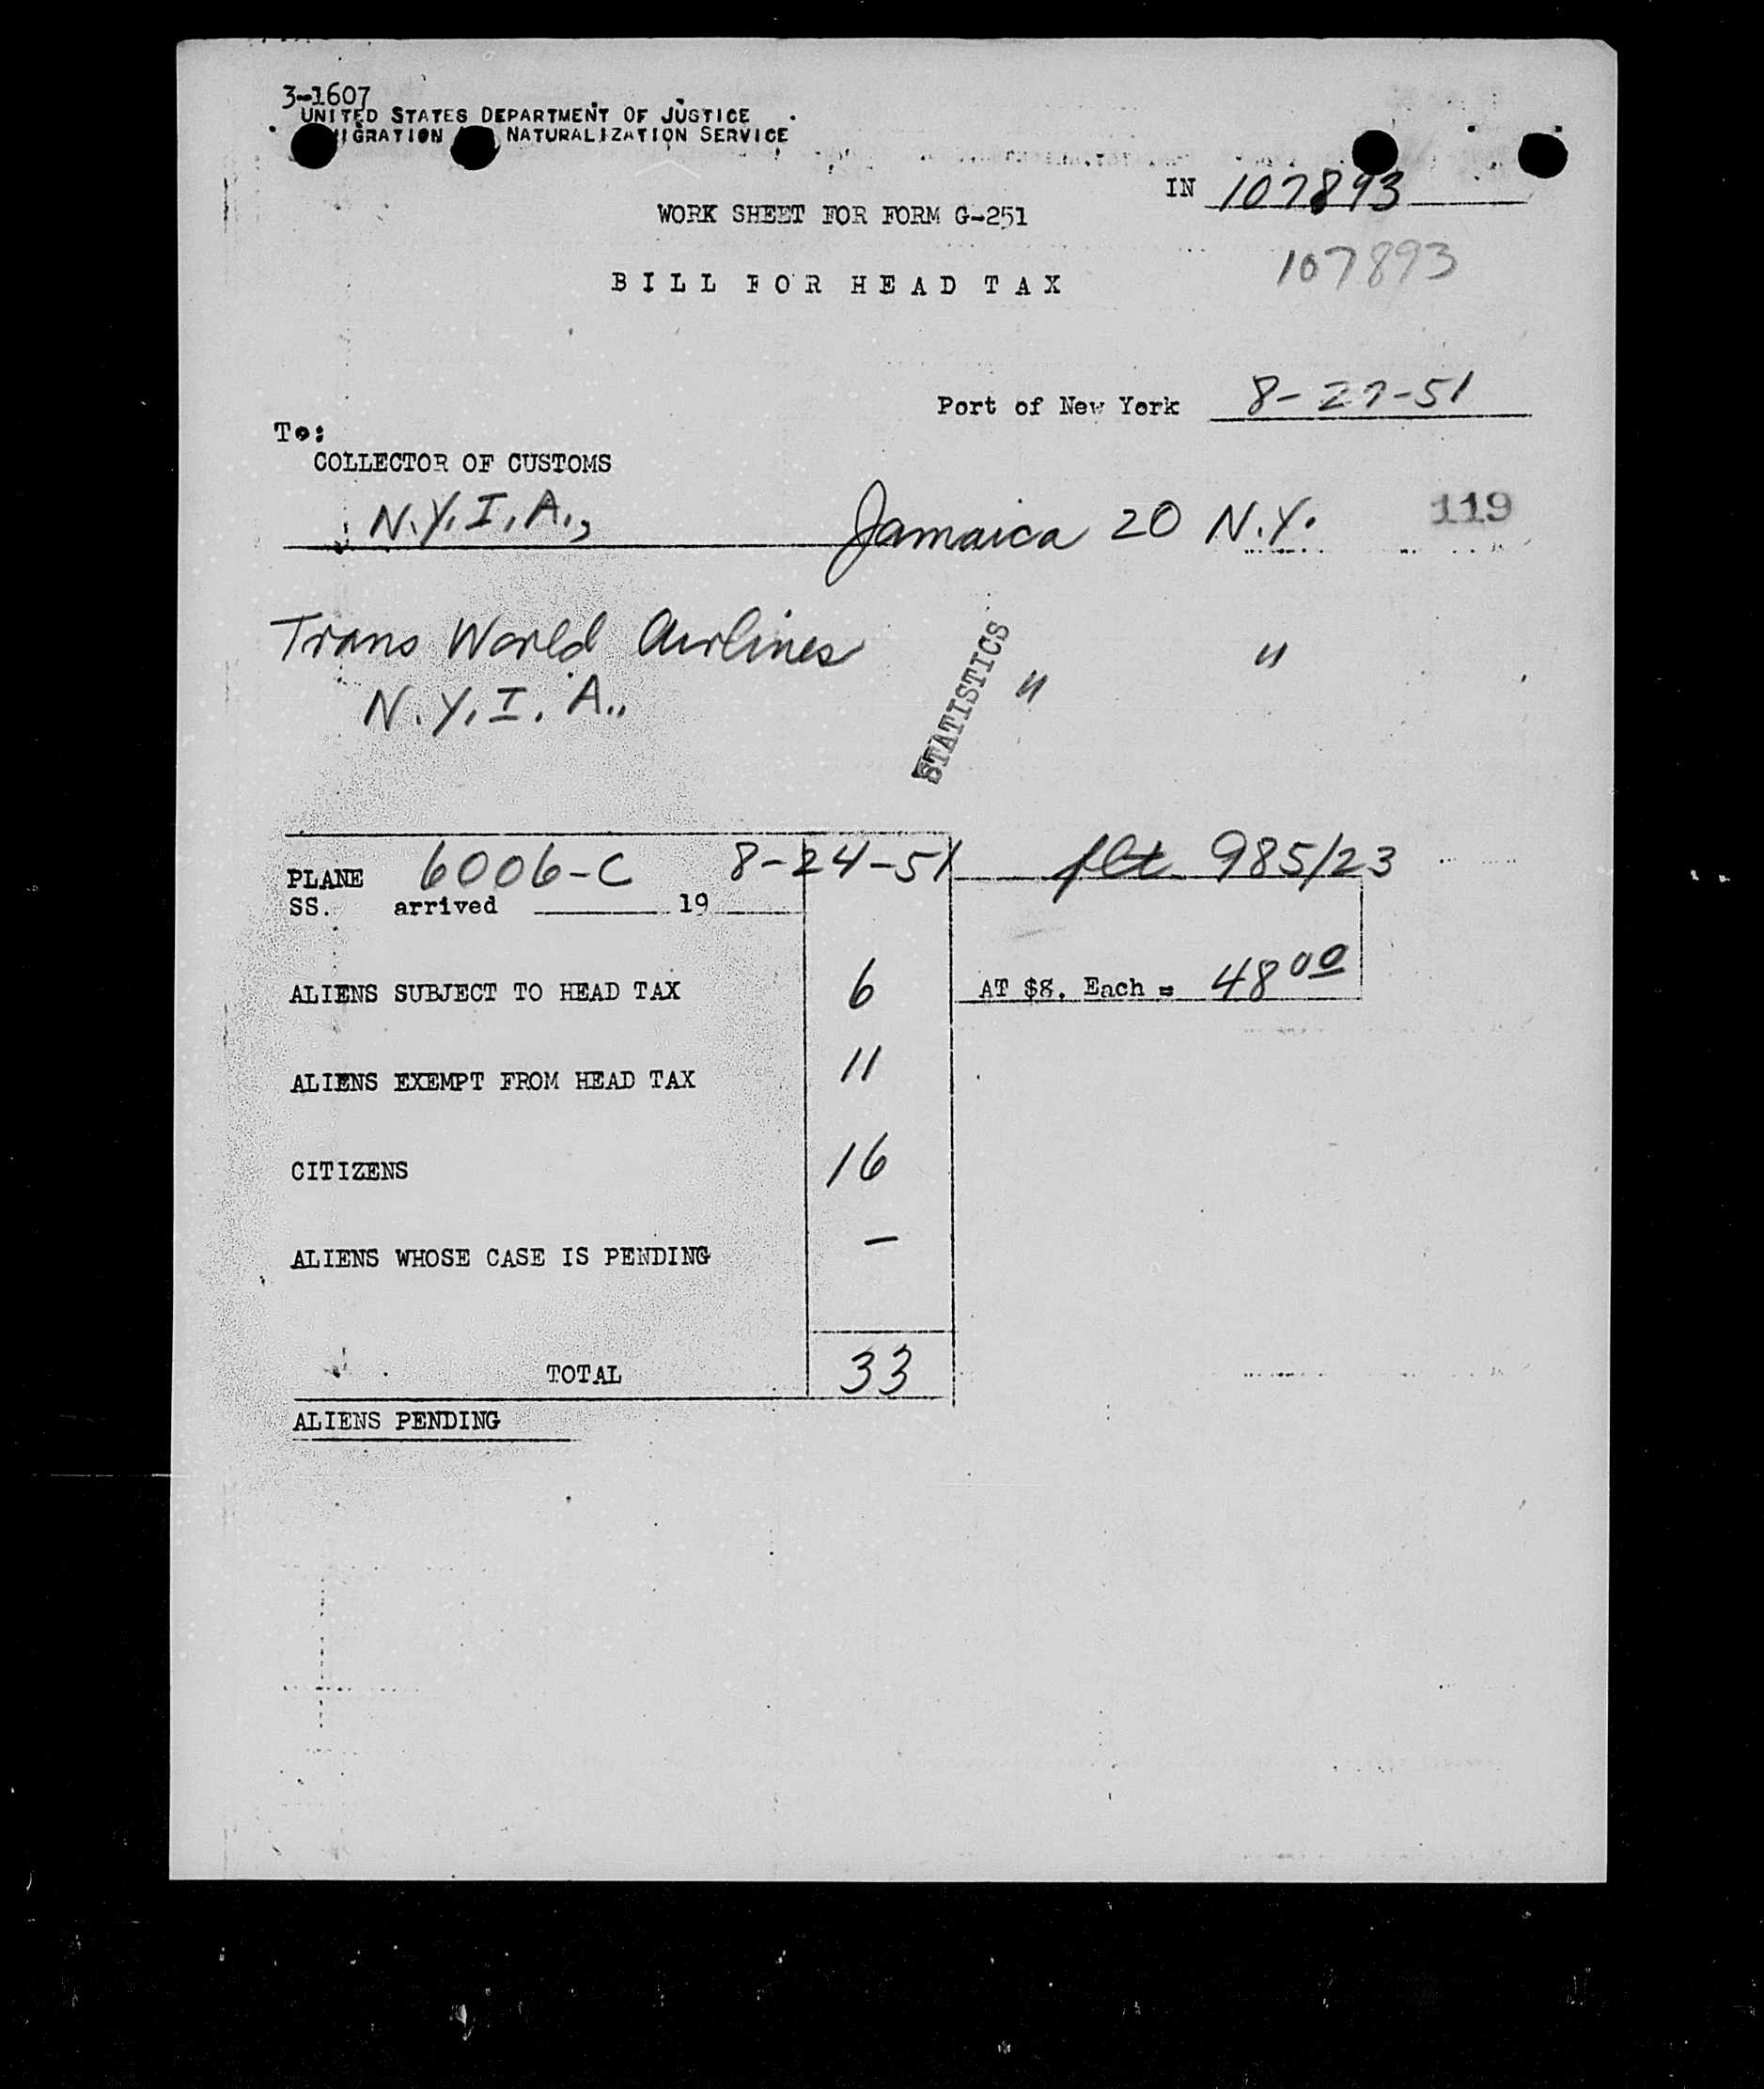 3-1607
UNITED STATES DEPARTMENT OF JUSTICE
NATURALIZATION SERVICE
IN 107893
WORK SHEET FOR FORM G-251
107893
BILL FOR HEAD TAX
Port of New York 8-27-51
To:
COLLECTOR OF CUSTOMS
N.Y.I.A., Jamaica 20 N.Y. 119
Trans World Airlines " "
N.Y.I.A.,
STATISTICS
PLANE 6006-C 8-24-51 flt 985/23
SS. arrived 19
ALIENS SUBJECT TO HEAD TAX 6 AT $8. Each = 48 00
ALIENS EXEMPT FROM HEAD TAX 11
CITIZENS 16
ALIENS WHOSE CASE IS PENDING —
TOTAL 33
ALIENS PENDING